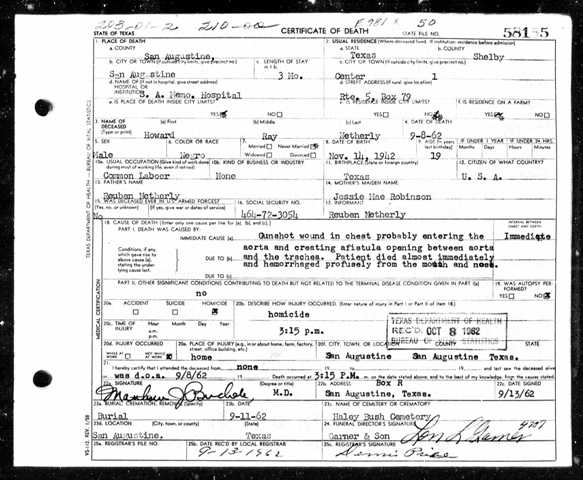 203-01-2 210-00 F 981 X 50
STATE OF TEXAS CERTIFICATE OF DEATH STATE FILE NO. 58135
1. PLACE OF DEATH 2. USUAL RESIDENCE (Where deceased lived. If institution: residence before admission)
a. COUNTY San Augustine, a. STATE Texas b. COUNTY Shelby
b. CITY OR TOWN (If outside city limits, give precinct no.) c. LENGTH OF STAY c. CITY OR TOWN (If outside city limits, give precinct no.)
San Augustine 3 Mo. Center 1
d. NAME OF (If not in hospital, give street address) HOSPITAL OR INSTITUTION d. STREET ADDRESS (If rural, give location)
S. A. Memo. Hospital Rte. 5, Box 79
e. IS PLACE OF DEATH INSIDE CITY LIMITS? e. IS RESIDENCE INSIDE CITY LIMITS? f. IS RESIDENCE ON A FARM?
YES NO YES NO YES NO
3. NAME OF DECEASED (Type or print) (a) First (b) Middle (c) Last 4. DATE OF DEATH
Howard Ray Metherly 9-8-62
5. SEX 6. COLOR OR RACE 7. Married Never Married Widowed Divorced 8. DATE OF BIRTH 9. AGE (In years last birthday) IF UNDER 1 YEAR IF UNDER 24 HRS.
Months Days Hours Min.
Male Negro Nov. 14, 1942 19
10a. USUAL OCCUPATION (Give kind of work done during most of working life, even if retired) 10b. KIND OF BUSINESS OR INDUSTRY 11. BIRTHPLACE (State or foreign country) 12. CITIZEN OF WHAT COUNTRY?
Common Laboer None Texas U. S. A.
13. FATHER'S NAME 14. MOTHER'S MAIDEN NAME
Reuben Metherly Jessie Mae Robinson
15. WAS DECEASED EVER IN U.S. ARMED FORCES? 16. SOCIAL SECURITY NO. 17. INFORMANT
(Yes, no, or unknown) (If yes, give war or dates of service)
No 464-72-3054 Reuben Metherly
18. CAUSE OF DEATH (Enter only one cause per line for (a), (b), and (c).) INTERVAL BETWEEN ONSET AND DEATH
PART I. DEATH WAS CAUSED BY:
IMMEDIATE CAUSE (a) Gunshot wound in chest probably entering the Immediate
Conditions, if any, which gave rise to above cause (a), stating the underlying cause last. DUE TO (b) aorta and creating afistula opening between aorta
and the trachea. Patient died almost immediately
DUE TO (c) and hemorrhaged profusely from the mouth and nose.
PART II. OTHER SIGNIFICANT CONDITIONS CONTRIBUTING TO DEATH BUT NOT RELATED TO THE TERMINAL DISEASE CONDITION GIVEN IN PART I (a) 19. WAS AUTOPSY PERFORMED?
no YES NO
20a. ACCIDENT SUICIDE HOMICIDE 20b. DESCRIBE HOW INJURY OCCURRED. (Enter nature of injury in Part I or Part II of item 18.)
homicide
20c. TIME OF INJURY Hour a.m. p.m. Month Day Year
3:15 p.m.
TEXAS DEPARTMENT OF HEALTH
REC'D OCT 8 1962
BUREAU OF VITAL STATISTICS
20d. INJURY OCCURRED WHILE AT WORK NOT WHILE AT WORK 20e. PLACE OF INJURY (e.g., in or about home, farm, factory, street, office building, etc.) 20f. CITY, TOWN, OR LOCATION COUNTY STATE
home San Augustine San Augustine Texas.
21. I hereby certify that I attended the deceased from none 19 to 19 and last saw the deceased alive
was d.o.a. 9/8/62 Death occurred at 3:15 P.M. on the date stated above, and to the best of my knowledge, from the causes stated.
22a. SIGNATURE (Degree or title) 22b. ADDRESS 22c. DATE SIGNED
M.D. Box R
San Augustine, Texas. 9/13/62
23a. BURIAL, CREMATION, REMOVAL (Specify) 23b. DATE 23c. NAME OF CEMETERY OR CREMATORY
Burial 9-11-62 Haley Bush Cemetery
23d. LOCATION (City, town, or county) (State) 24. FUNERAL DIRECTOR'S SIGNATURE
San Augustine, Texas Garner & Son
25a. REGISTRAR'S FILE NO. 25b. DATE REC'D BY LOCAL REGISTRAR 25c. REGISTRAR'S SIGNATURE
9-13-1962
TEXAS DEPARTMENT OF HEALTH — BUREAU OF VITAL STATISTICS
MEDICAL CERTIFICATION